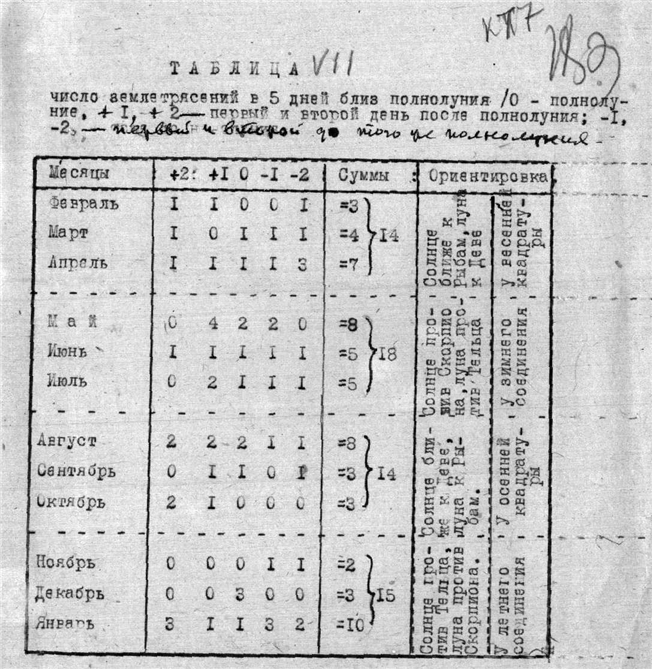 КП7
ТАБЛИЦА VII
число землетрясений в 5 дней близ полнолуния /0 - полнолу-
ние, +I, +2 — первый и второй день после полнолуния; -I,
-2, — первый и второй до того же полнолуния.
Месяцы +2: +I 0 -I -2 Суммы Ориентировка
Февраль I I 0 0 I =3
Март I 0 I I I =4 } I4
Апрель I I I I 3 =7
Солнце ближе к рыбам, луна к Деве
У весенней квадратуры
Май 0 4 2 2 0 =8
Июнь I I I I I =5 } I8
Июль 0 2 I I I =5
Солнце против Скорпиона, луна против Тельца
У зимнего соединения
Август 2 2 2 I I =8
Сентябрь 0 I I 0 I =3 } I4
Октябрь 2 I 0 0 0 =3
Солнце ближе к Деве, луна к Рыбам.
У осенней квадратуры
Ноябрь 0 0 0 I I =2
Декабрь 0 0 3 0 0 =3 } I5
Январь 3 I I 3 2 =I0
Солнце против Тельца, луна против Скорпиона.
У летнего соединения